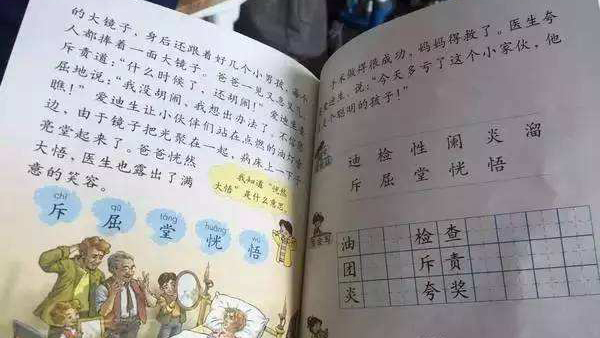 的大镜子，身后还跟着好几个小男孩，每个
人都捧着一面大镜子。爸爸一见又急又
斥责道：“什么时候了，还胡闹！”爱迪生委
屈地说：“我没胡闹，我想出办法了，不信您
瞧！”爱迪生让小伙伴们站在点燃的油灯旁
边，由于镜子把光聚在一起，病床上一下子
亮堂起来了。爸爸恍然
大悟，医生也露出了满
意的笑容。
我知道“恍然
大悟”是什么意思。
chì qū táng huǎng wù
斥 屈 堂 恍 悟
手术做得很成功，妈妈得救了。医生夸
爱迪生，说：“今天多亏了这个小家伙，他
是个聪明的孩子！”
迪 检 性 闹 炎 溜
斥 屈 堂 恍 悟
油 检查
团 斥责
炎 夸奖